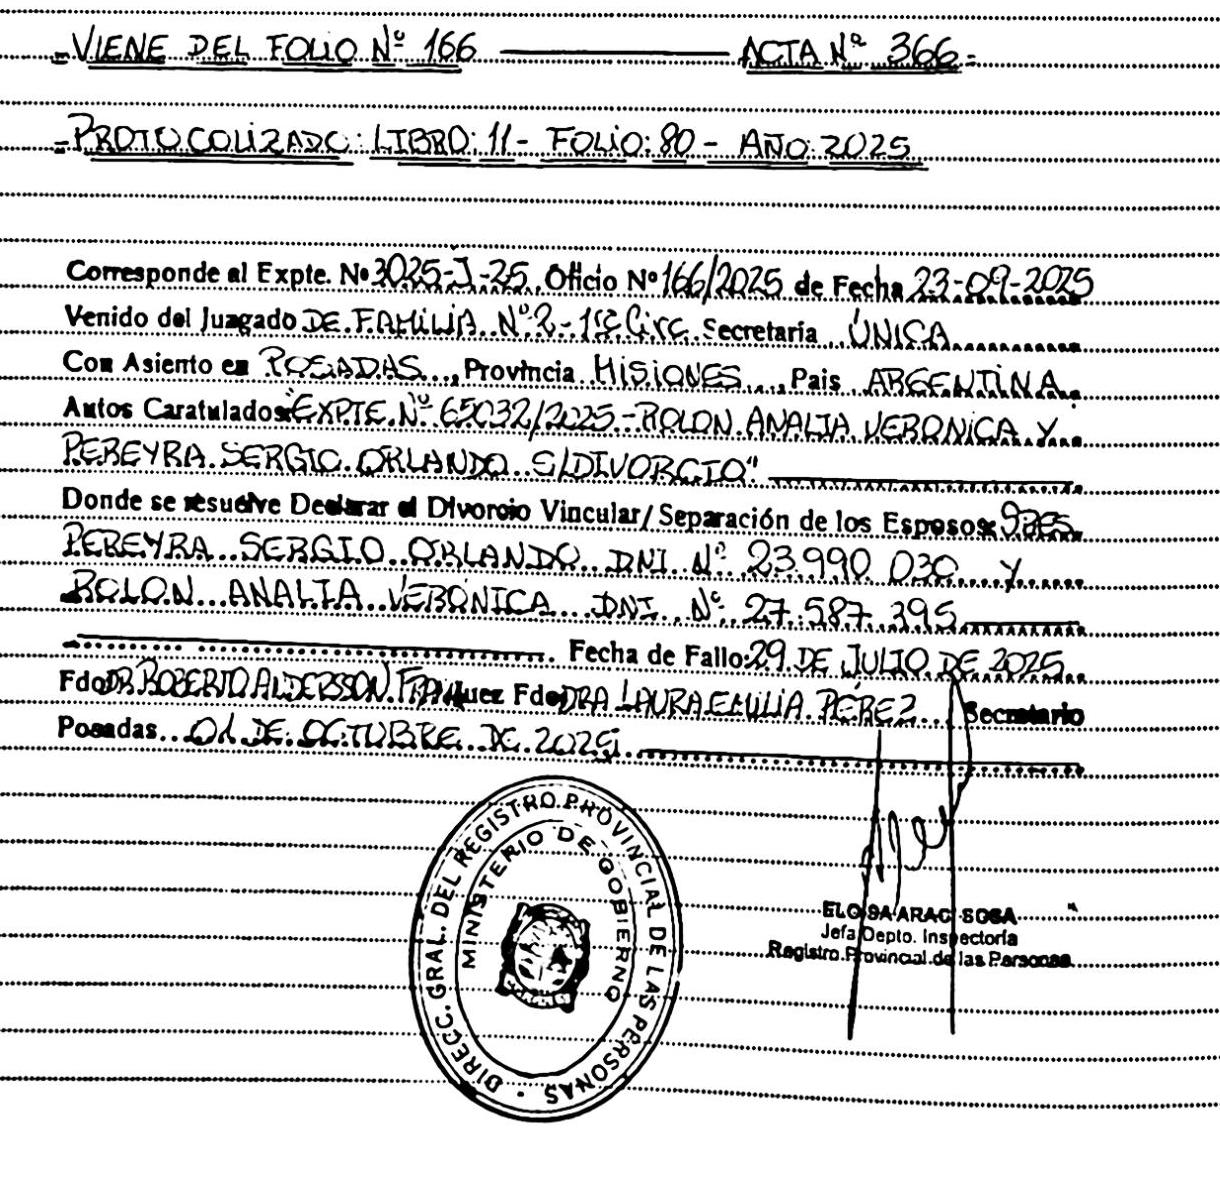 =VIENE DEL FOLIO Nº 166 ACTA Nº 366=
=PROTOCOLIZADO: LIBRO: 11 - FOLIO: 80 - AÑO: 2025
Corresponde al Expte. Nº 3025-J-25 Oficio Nº 166/2025 de Fecha 23-09-2025
Venido del Juagado DE FAMILIA Nº 2 - 1ra Circ Secretaría ÚNICA
Con Asiento en POSADAS, Provincia MISIONES, Pais ARGENTINA
Autos Caratulados: "EXPTE. Nº 65032/2025 - ROLON ANALIA VERONICA Y
PEREYRA SERGIO ORLANDO S/DIVORCIO"
Donde se resuelve Declarar el Divorcio Vincular/ Separación de los Esposos: SRES.
PEREYRA SERGIO ORLANDO DNI Nº 23.990.030 Y
ROLON ANALIA VERONICA DNI Nº 27.587.395
Fecha de Fallo: 29 DE JULIO DE 2025
Fdo DR. ROBERTO ALDERSSON Juez Fdo DRA LAURA EMILIA PÉREZ Secretario
Posadas 01 DE OCTUBRE DE 2025
DIRECC. GRAL. DEL REGISTRO PROVINCIAL DE LAS PERSONAS
MINISTERIO DE GOBIERNO
SOSA
Jefa Depto. Inspectoría
Registro Provincial de las Personas